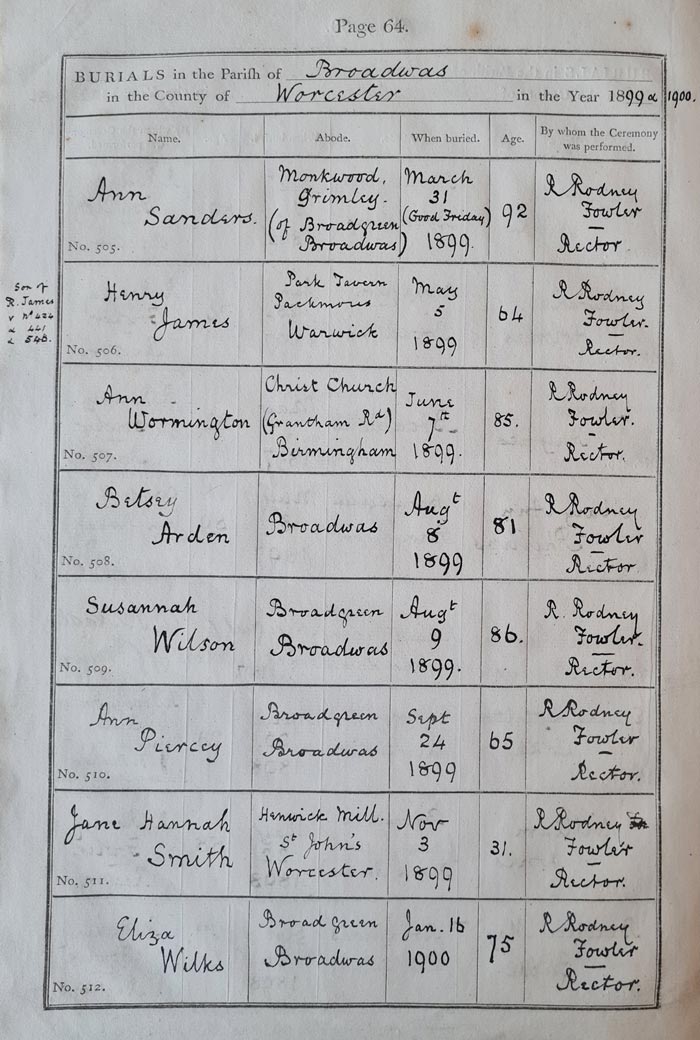 Page 64.
BURIALS in the Parish of Broadwas
in the County of Worcester in the Year 1899 & 1900.
Name. Abode. When buried. Age. By whom the Ceremony was performed.
Ann Sanders.
No. 505.
Monkwood,
Grimley.
(of Broadgreen
Broadwas)
March
31
(Good Friday)
1899.
92
R Rodney
Fowler
Rector.
Son of
R. James
v No 424
& 441
& 546.
Henry
James
No. 506.
Park Tavern
Packmores
Warwick
May
5
1899
64
R Rodney
Fowler.
Rector.
Ann
Wormington
No. 507.
Christ Church
(Grantham Rd)
Birmingham
June
7th
1899.
85.
R Rodney
Fowler.
Rector.
Betsey
Arden
No. 508.
Broadwas
Augt
8
1899
81
R Rodney
Fowler
Rector
Susannah
Wilson
No. 509.
Broadgreen
Broadwas
Augt
9
1899.
86.
R. Rodney
Fowler.
Rector.
Ann
Piercey
No. 510.
Broadgreen
Broadwas
Sept
24
1899
65
R Rodney
Fowler
Rector.
Jane Hannah
Smith
No. 511.
Henwick Mill.
St John's
Worcester.
Nov
3
1899
31.
R Rodney
Fowler
Rector.
Eliza
Wilks
No. 512.
Broadgreen
Broadwas
Jan. 16
1900
75
R Rodney
Fowler
Rector.